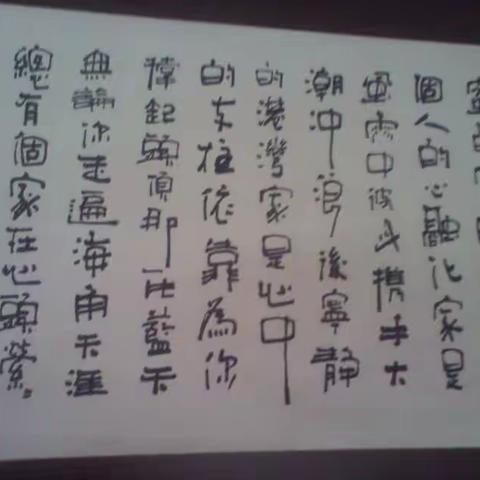 個人的心融化家是
風雨中彼此攜手大
潮沖浪後寧靜
的港灣家是心中
的支柱依靠為你
起頭頂那片藍天
無論你走遍海角天涯
總有個家在心頭縈。